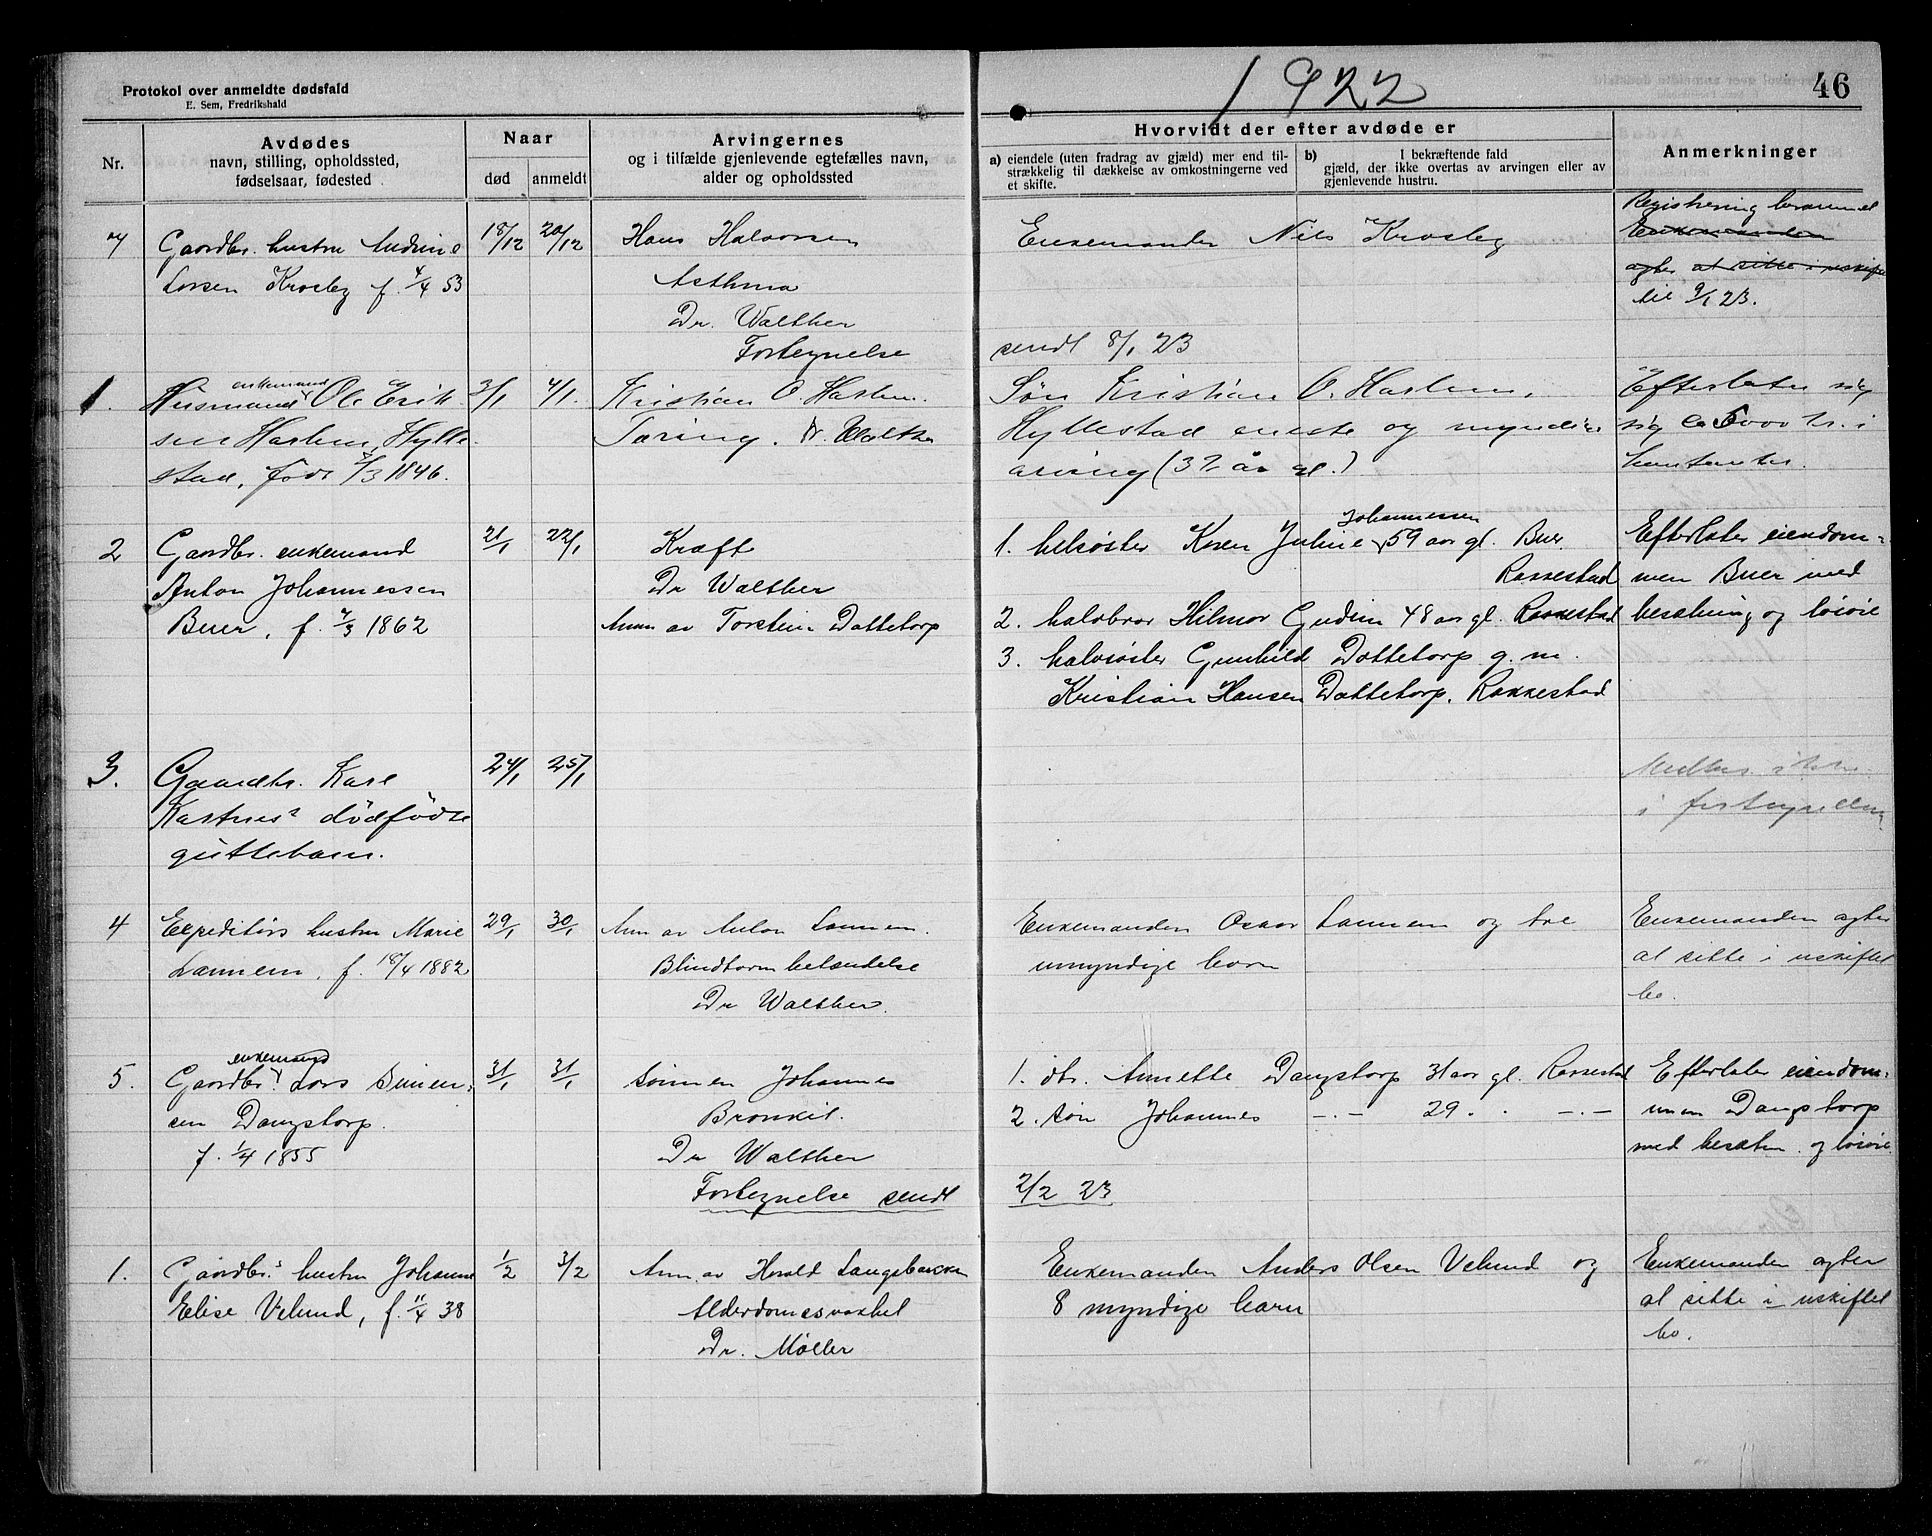 Protokol over anmeldte dødsfald
E. Sem, Fredrikshald
1922
46
Nr.
Avdødes
navn, stilling, opholdssted,
fødselsaar, fødested
Naar
død
anmeldt
Arvingernes
og i tilfælde gjenlevende egtefælles navn,
alder og opholdssted
Hvorvidt der efter avdøde er
a) eiendele (uten fradrag av gjæld) mer end til-
strækkelig til dækkelse av omkostningerne ved
et skifte.
b) I bekræftende fald
gjæld, der ikke overtas av arvingen eller av
gjenlevende hustru.
Anmerkninger
7
Gaardbr. hustru Andrine
Larsen Krosby f. 4/4 53
18/12
20/12
Hans Halvorsen
Asthma
Dr. Walther
Fortegnelse
Enkemanden Nils Krosby
sendt 8/1 23
Registrering berammet
Enkemanden
agter at sitte i uskiftet
til 9/1 23.
1.
enkemand
Husmand Ole Erik-
sen Haslem, Hylle-
stad, født /3 1846.
3/1
4/1.
Kristian O. Haslem.
Tæring. Dr. Walther
Søn Kristian O. Haslem,
Hyllestad eneste og myndige
arving (32 år gl.)
Efterlater sig
sig ca 5000 kr. i
kontanter.
2
Gaardbr. enkemand
Anton Johannessen
Buer, f. /3 1862
21/1
22/1
Kræft
Dr Walther
Anm av Torstein Dattetorp
Johannessen
1. helsøster Karen Juline 59 aar gl. Buer.
Rakkestad
2. halvbror Hilmar Gudim 48 aar gl. Rakkestad
3. halvsøster Gunhild Dattetorp g. m.
Kristian Hansen Dattetorp, Rakkestad
Efterlater eiendom-
men Buer med
besætning og løsøre
3.
Gaardbr. Karl
Kastnes' dødfødte
guttebarn.
24/1
25/1
i fortegnelsen
4
Expeditørs hustru Marie
Lannem, f. 18/4 1882
29/1
30/1
Anm av Anton Lannem.
Blindtarmbetændelse
Dr Walther.
Enkemanden Oskar Lannem og tre
umyndige barn
Enkemanden agter
at sitte i uskiftet
bo.
5.
enkemand
Gaardbr. Lars Simen-
sen Dangstorp.
f. 1/4 1855
31/1
31/1
sønnen Johannes
Bronkit.
Dr Walther
Fortegnelse sendt
1. dtr. Annette Dangstorp 31 aar gl. Rakkestad
2. søn Johannes —.— 29 . . —.—
2/2 23
Efterlater eiendom-
men Dangstorp
med besætn. og løsøre
1.
Gaardbr.s hustru Johanne
Elise Velund, f. 11/4 38
1/2
3/2
Anm. av Harald Langebækken
Alderdomssvakhet
Dr. Møller
Enkemanden Anders Olsen Velund og
8 myndige barn
Enkemanden agter
at sitte i uskiftet
bo.